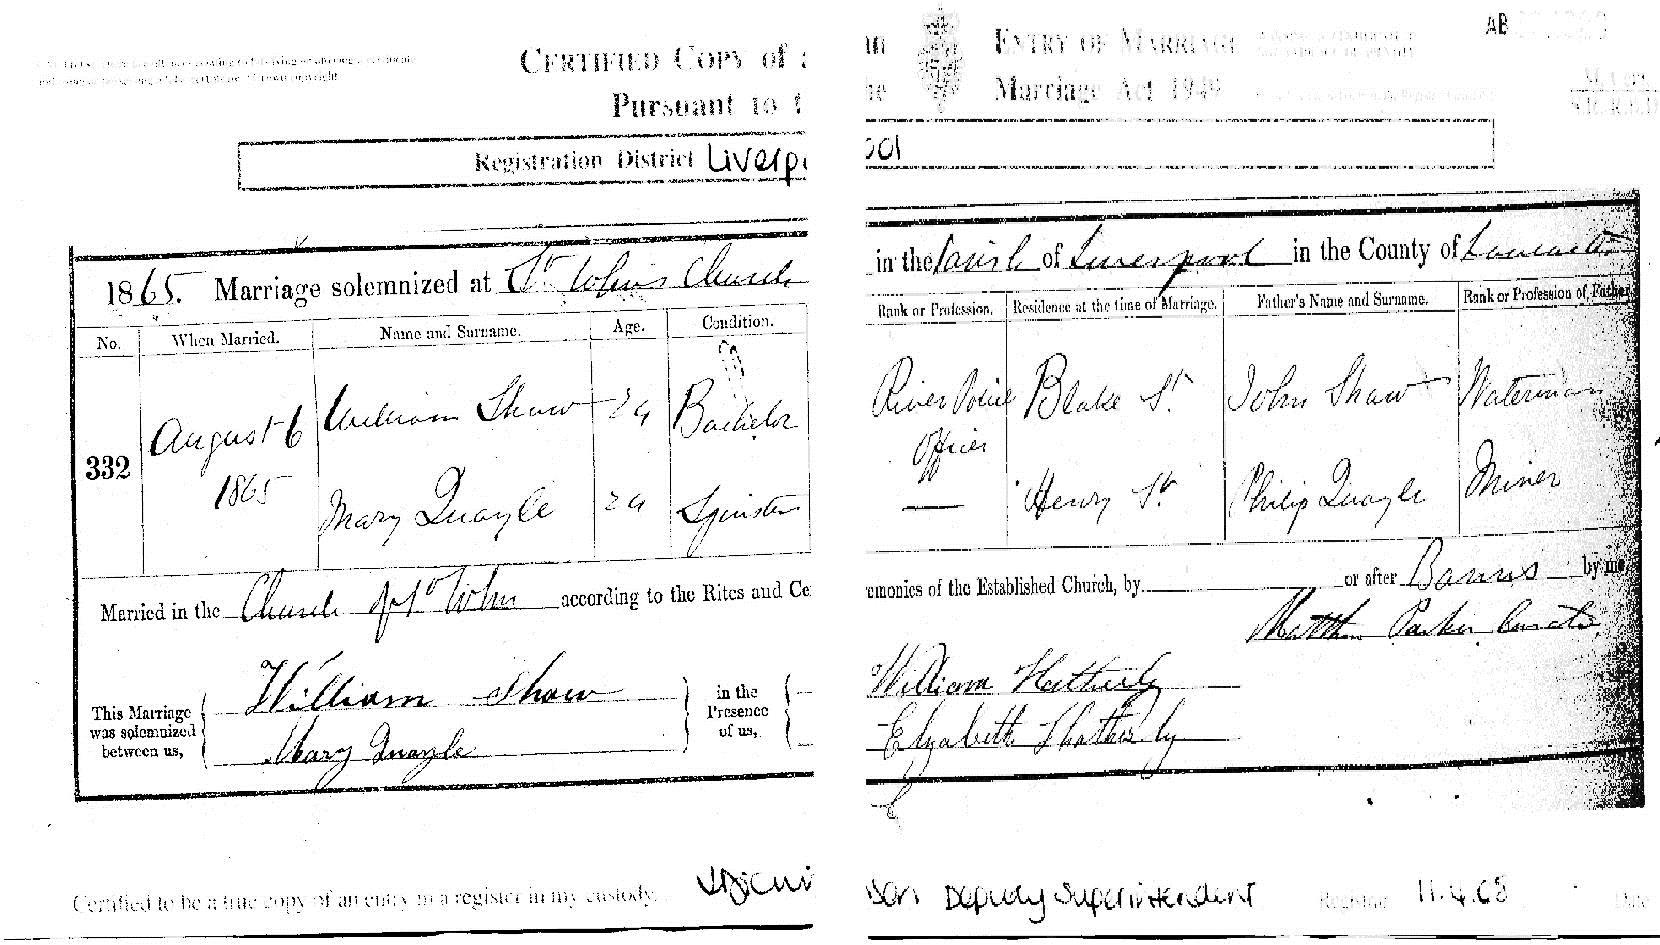 CERTIFIED COPY of an ENTRY OF MARRIAGE
Pursuant to the Marriage Act 1949
AB
Registration District Liverpool
1865. Marriage solemnized at St. Johns Church in the Parish of Liverpool in the County of Lancaster
No. When Married. Name and Surname. Age. Condition. Rank or Profession. Residence at the time of Marriage. Father's Name and Surname. Rank or Profession of Father
332 August 6 1865
William Shaw 24 Bachelor River Police Officer Blake St. John Shaw Waterman
Mary Quayle 24 Spinster — Henry St. Philip Quayle Miner
Married in the Church of St John according to the Rites and Ceremonies of the Established Church, by or after Banns by me,
Matthew Parker Curate
This Marriage was solemnized between us,
William Shaw
Mary Quayle
in the Presence of us,
William Hatherly
Elizabeth Hatherly
Certified to be a true copy of an entry in a register in my custody.
Deputy Superintendent Registrar 11.4.68 Date